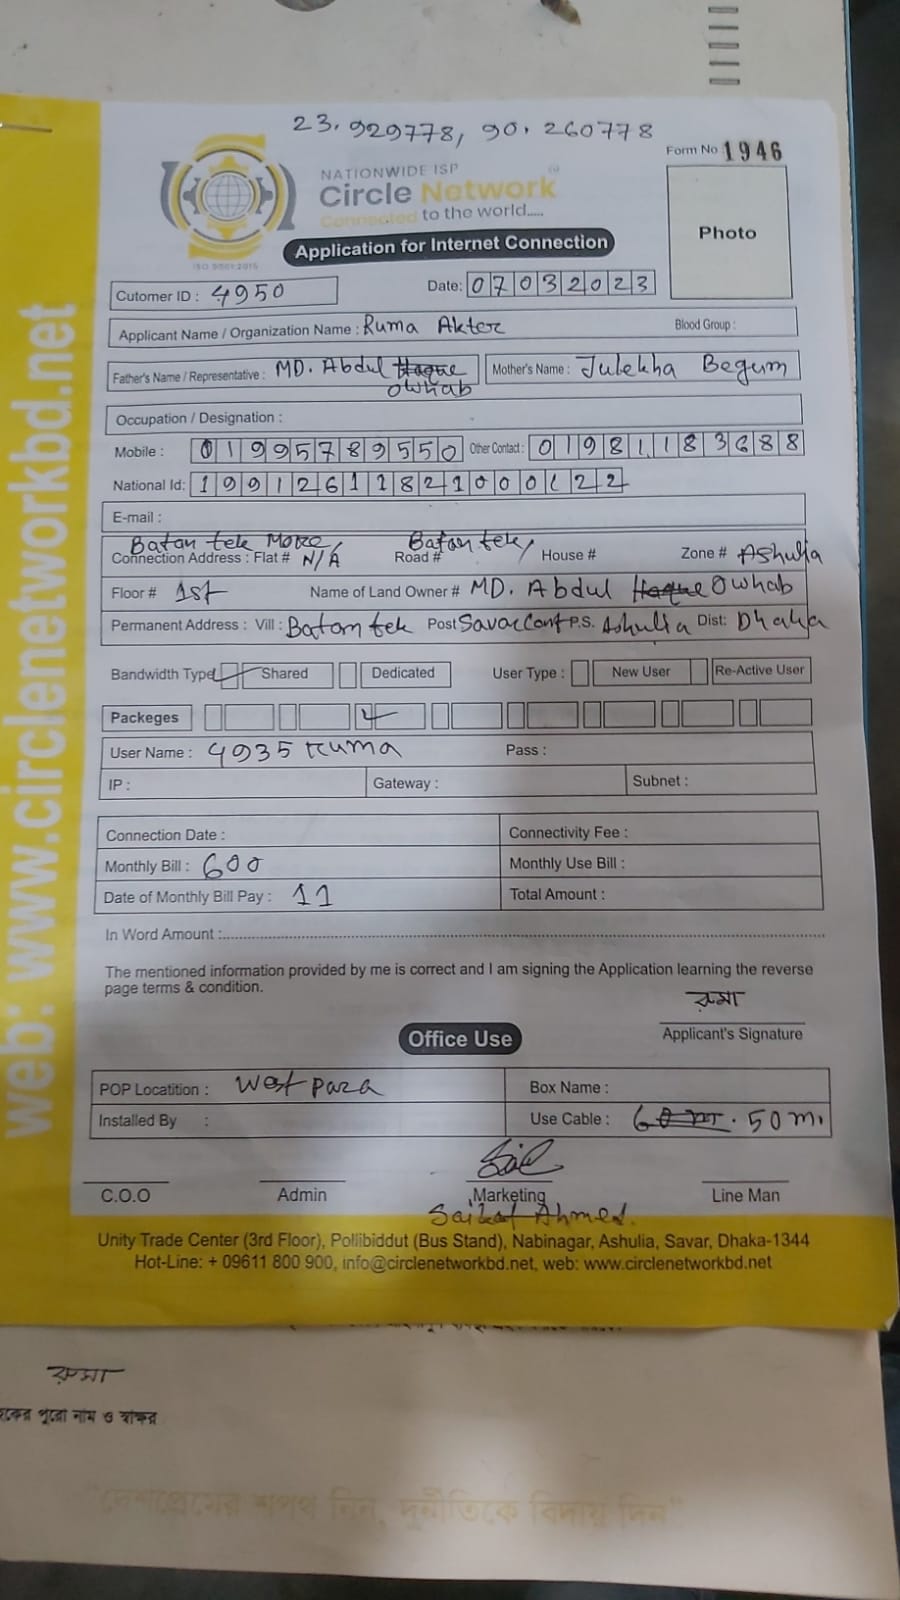 23.929778, 90.260778
Form No 1946
NATIONWIDE ISP
Circle Network
Connected to the world.....
ISO 9001:2015
Application for Internet Connection
Photo
Cutomer ID : 4950
Date: 07032023
Applicant Name / Organization Name : Ruma Akter Blood Group :
Father's Name / Representative : MD. Abdul Haque Owhab Mother's Name : Julekha Begum
Occupation / Designation :
Mobile : 01995789550 Other Contact : 01981183688
National Id:
E-mail :
Connection Address : Flat # N/A Batan tek More, Road # Batan tek, House # Zone # Ashulia
Floor # 1st Name of Land Owner # MD. Abdul Haque Owhab
Permanent Address : Vill : Batan tek Post Savar Cant P.S. Ashulia Dist: Dhaka
Bandwidth Type Shared Dedicated User Type : New User Re-Active User
Packeges
User Name : 4935 Ruma Pass :
IP : Gateway : Subnet :
Connection Date : Connectivity Fee :
Monthly Bill : 600 Monthly Use Bill :
Date of Monthly Bill Pay : 11 Total Amount :
In Word Amount :
The mentioned information provided by me is correct and I am signing the Application learning the reverse
page terms & condition.
রুমা
Applicant's Signature
Office Use
POP Locatition : West para Box Name :
Installed By : Use Cable : 60 m. 50 m.
C.O.O Admin Marketing Line Man
Saikat Ahmed.
Unity Trade Center (3rd Floor), Pollibiddut (Bus Stand), Nabinagar, Ashulia, Savar, Dhaka-1344
Hot-Line: + 09611 800 900, info@circlenetworkbd.net, web: www.circlenetworkbd.net
web: www.circlenetworkbd.net
রুমা
পুরো নাম ও স্বাক্ষর
"দেশপ্রেমের শপথ নিন, দুর্নীতিকে বিদায় দিন"